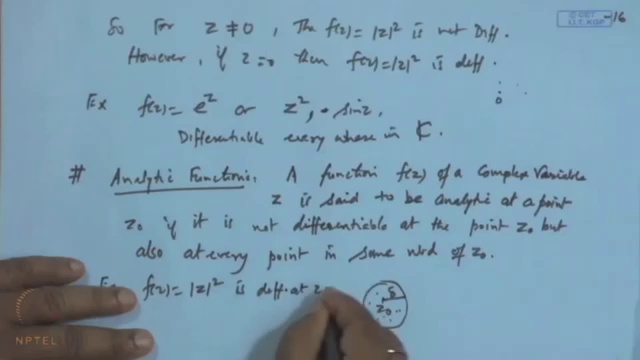 So For z ≠ 0, The f(z) = |z|² is not Diff.
However, if z = 0 then f(z) = |z|² is diff.
Ex f(z) = e^z or z², sin z,
Differentiable every where in ℂ.
# Analytic Function: A function f(z) of a Complex Variable
z is said to be analytic at a point
z₀ if it is not differentiable at the point z₀ but
also at every point in some nbd of z₀.
f(z) = |z|² is diff. at z
δ
z₀
0
© CET
I.I.T. KGP
-16
NPTEL